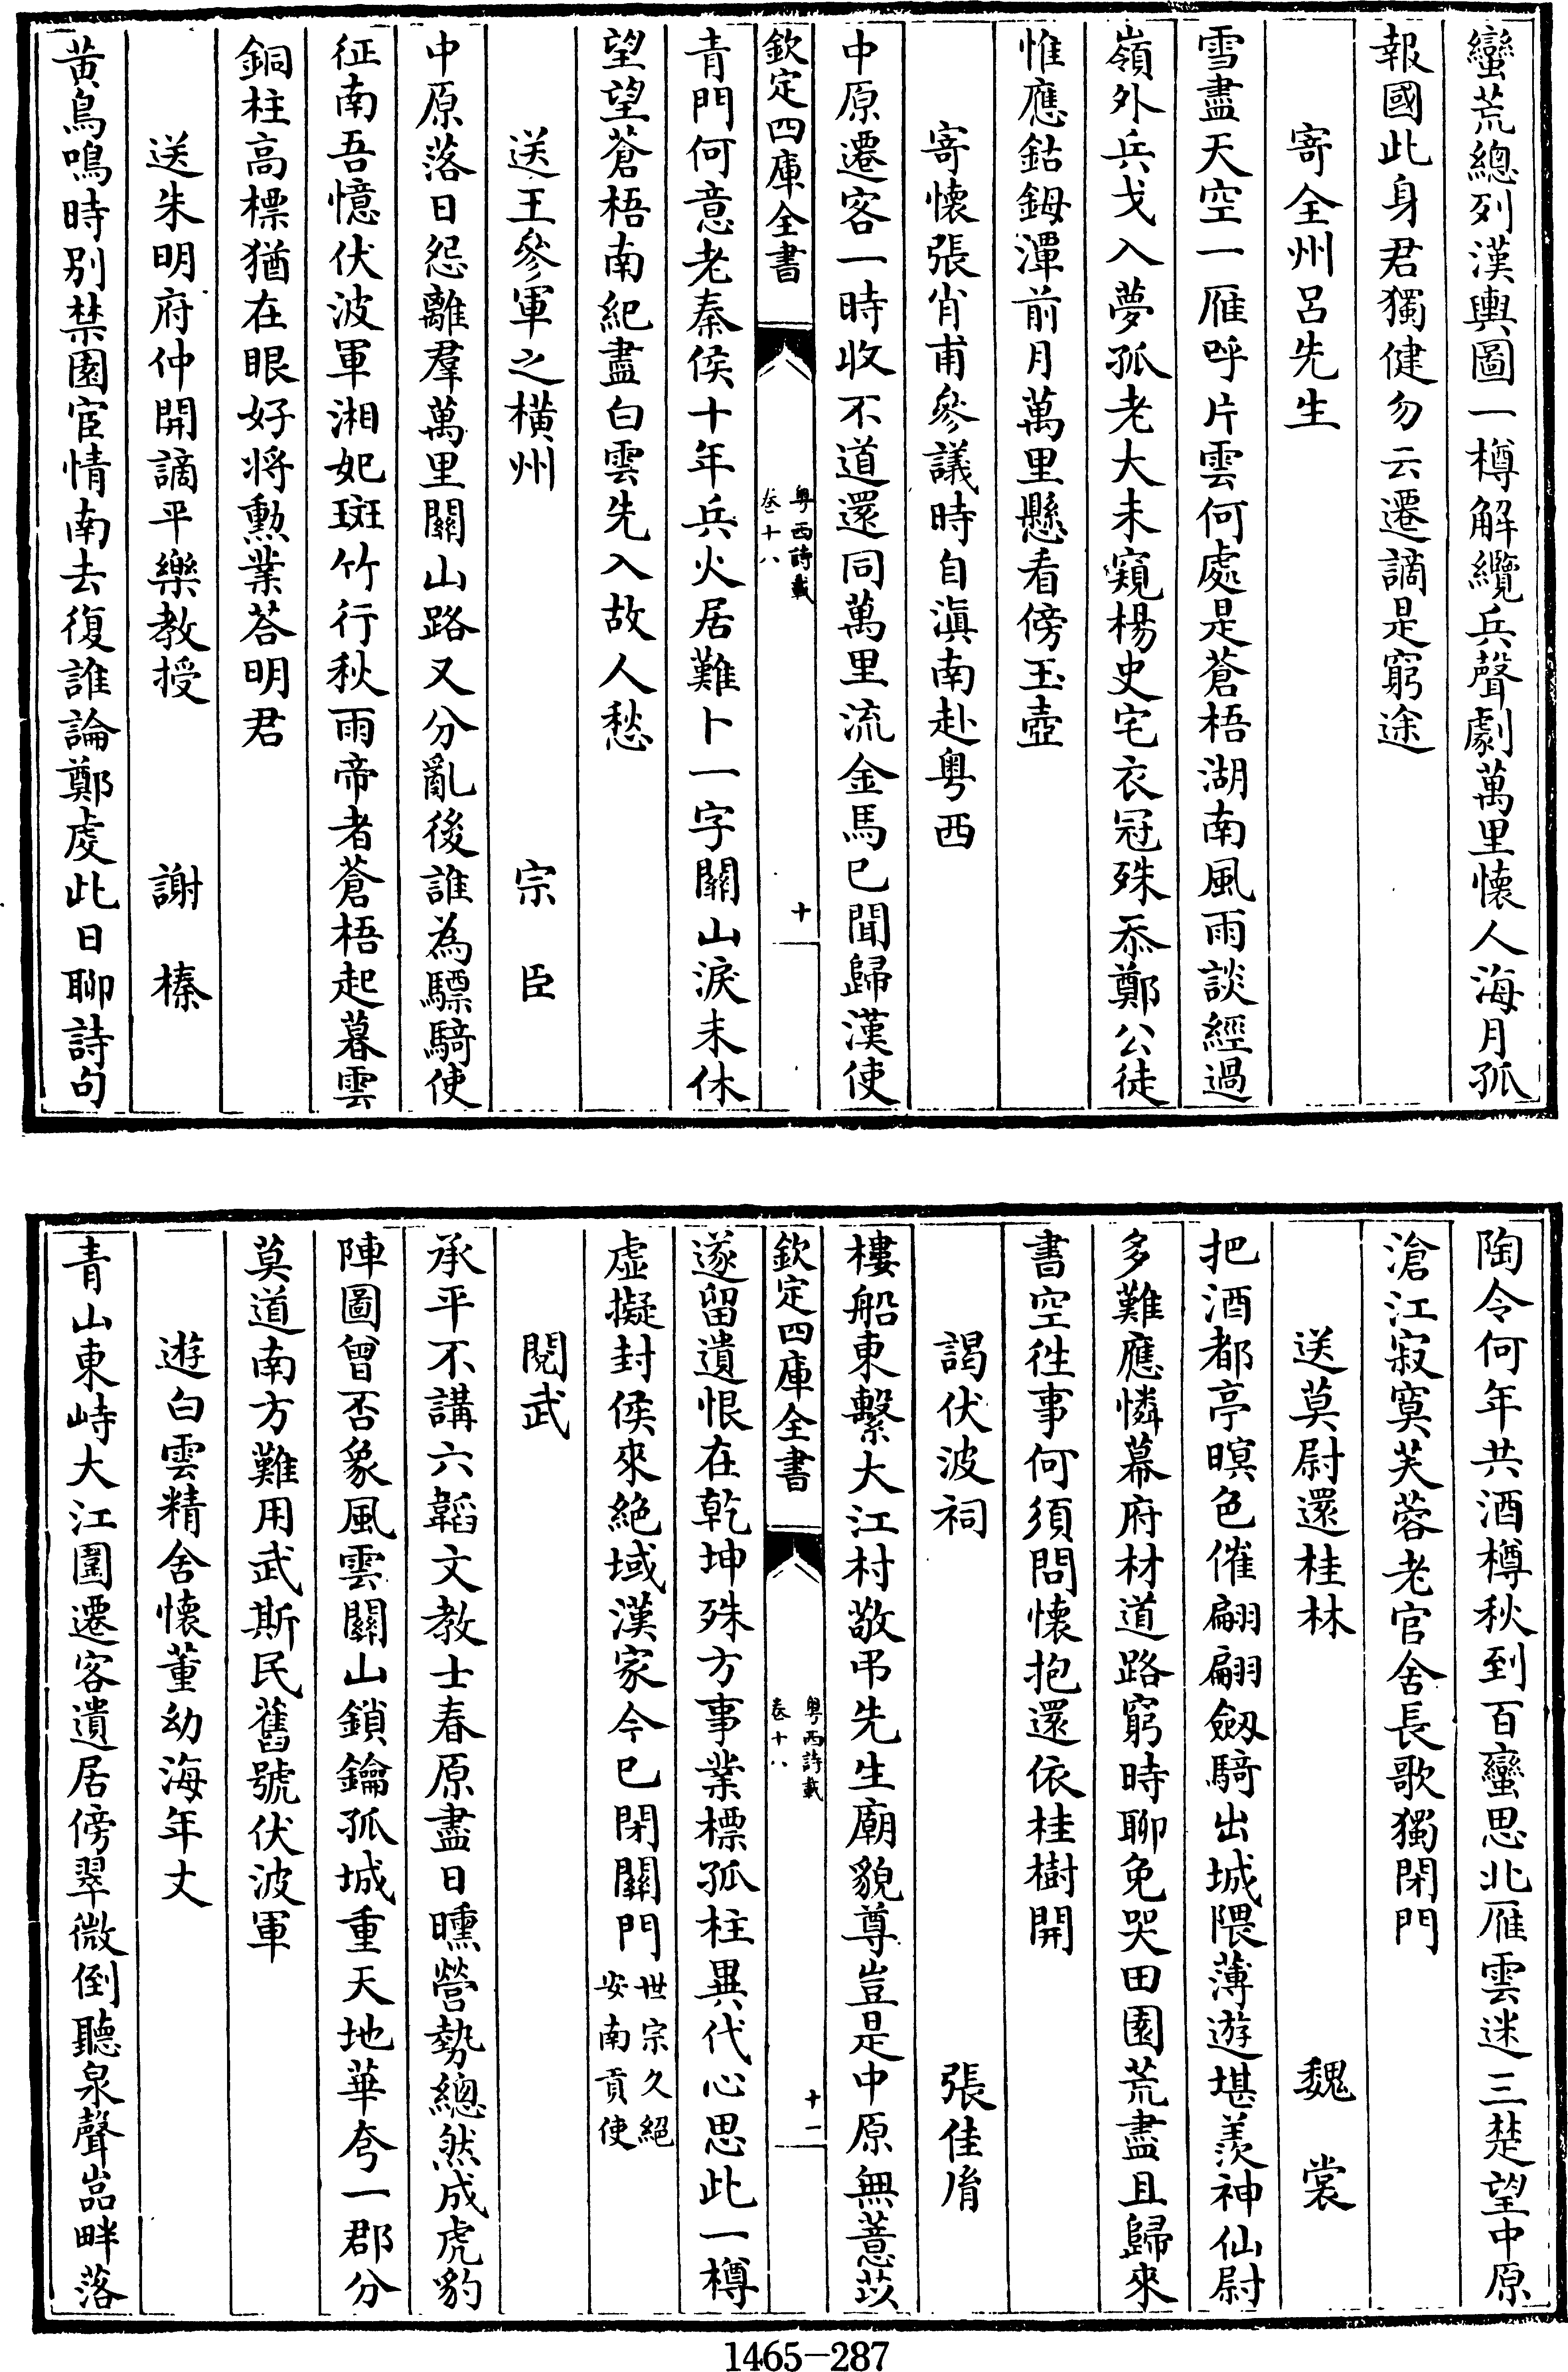 蠻荒總列漢輿圖一樽解纜兵聲劇萬里懷人海月孤
報國此身君獨健勿云遷謫是窮途
寄全州呂先生
雪盡天空一雁呼片雲何處是蒼梧湖南風雨談經過
嶺外兵戈入夢孤老大未窺楊史宅衣冠殊忝鄭公徒
惟應鈷鉧潭前月萬里懸看傍玉壺
寄懷張肖甫參議時自滇南赴粤西
中原遷客一時收不道還同萬里流金馬已聞歸漢使
欽定四庫全書
粤西詩載
卷十八
十
青門何意老秦侯十年兵火居難卜一字關山淚未休
望望蒼梧南紀盡白雲先入故人愁
送王參軍之橫州 宗臣
中原落日怨離羣萬里關山路又分亂後誰為驃騎使
征南吾憶伏波軍湘妃斑竹行秋雨帝者蒼梧起暮雲
銅柱高標猶在眼好將勲業荅明君
送朱明府仲開謫平樂教授 謝榛
黄鳥鳴時别禁園宦情南去復誰論鄭虔此日聊詩句
陶令何年共酒樽秋到百蠻思北雁雲迷三楚望中原
滄江寂寞芙蓉老官舍長歌獨閉門
送莫尉還桂林 魏裳
把酒都亭暝色催翩翩劔騎出城隈薄遊堪羨神仙尉
多難應憐幕府材道路窮時聊免哭田園荒盡且歸來
書空徃事何須問懷抱還依桂樹開
謁伏波祠 張佳胤
樓船東繫大江村敬弔先生廟貌尊豈是中原無薏苡
欽定四庫全書
粤西詩載
卷十八
十一
遂留遺恨在乾坤殊方事業標孤柱異代心思此一樽
虚擬封侯來絶域漢家今已閉關門世宗久絕
安南貢使
閱武
承平不講六韜文教士春原盡日曛營勢總然成虎豹
陣圖曾否象風雲關山鎖鑰孤城重天地華夸一郡分
莫道南方難用武斯民舊號伏波軍
遊白雲精舍懷董幼海年丈
青山東峙大江圍遷客遺居傍翠微倒聽泉聲嵓畔落
1465-287